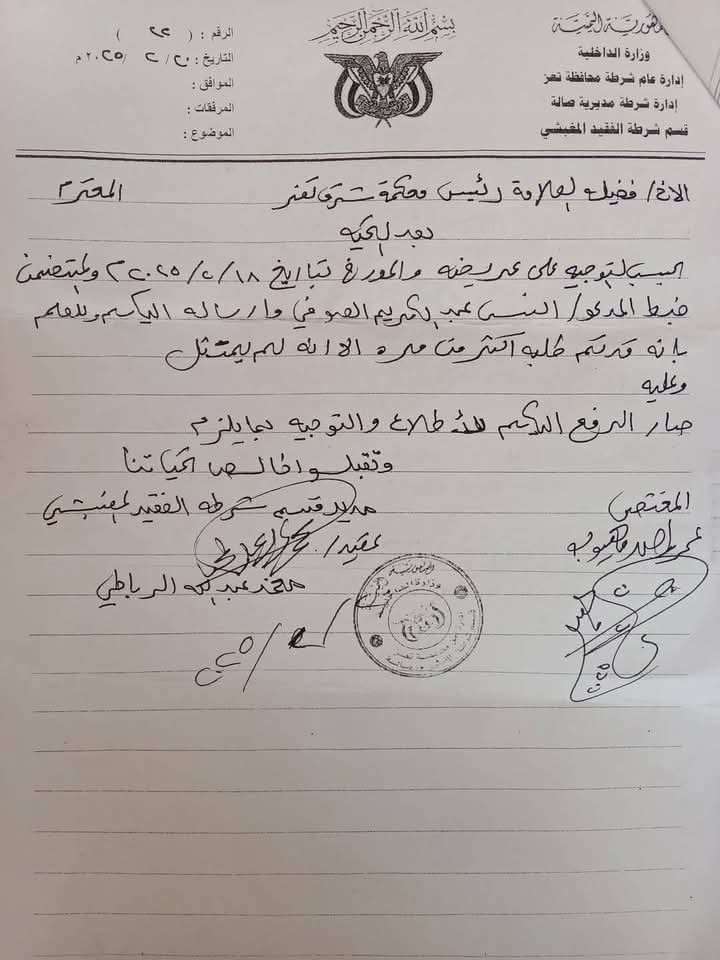 بسم الله الرحمن الرحيم
الجمهورية اليمنية
وزارة الداخلية
إدارة عام شرطة محافظة تعز
إدارة شرطة مديرية صالة
قسم شرطة الفقيد المغبشي
الرقم : ( ٢٢ )
التاريخ : ٢٠ / ٢ / ٢٠٢٥ م
الموافق :
المرفقات :
الموضوع :
الاخ/ فضيلة العلامة رئيس محكمة شرق تعز المحترم
بعد التحية
حسب التوجيه على عريضه والمورخ بتاريخ ١٨ / ٢ / ٢٠٢٥ م والمتضمن
ضبط المدعو/ عبد الكريم الصوفي وارساله اليكم وللعلم
بانه قد تم طلبه اكثر من مره الا انه لم يمتثل
وعليه
صار الرفع اليكم للاطلاع والتوجيه بما يلزم
وتقبلوا خالص تحياتنا
المختص
مدير قسم شرطة الفقيد المغبشي
عقيد/
محمد عبدالله الرباطي